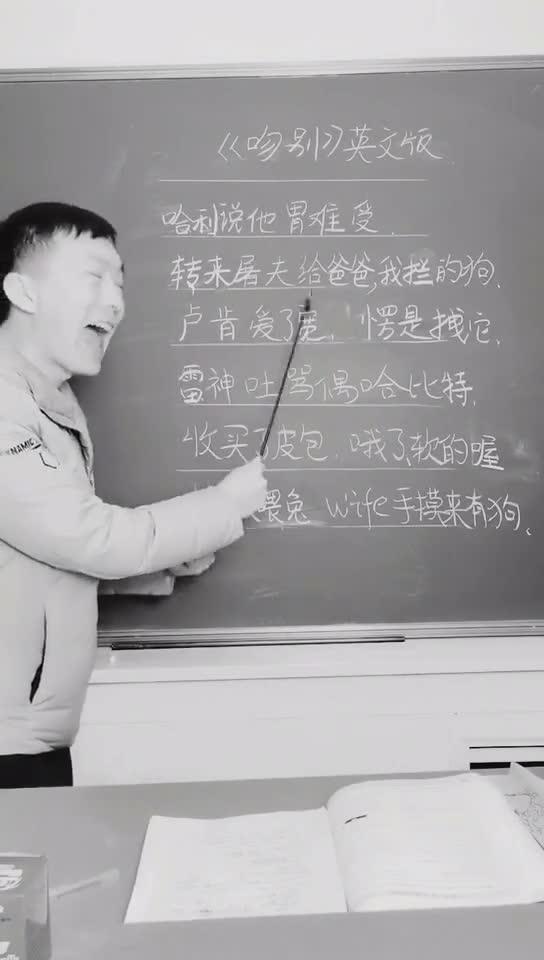 《吻别》英文版
哈利说他胃难受.
转来屠夫给爸爸,我拦的狗、
卢肯爱了宽, 愣是拽它、
雷神吐骂偶哈比特,
收买了皮包、哦了,软的喔
喂兔 wife手摸来有狗、
NAMIC